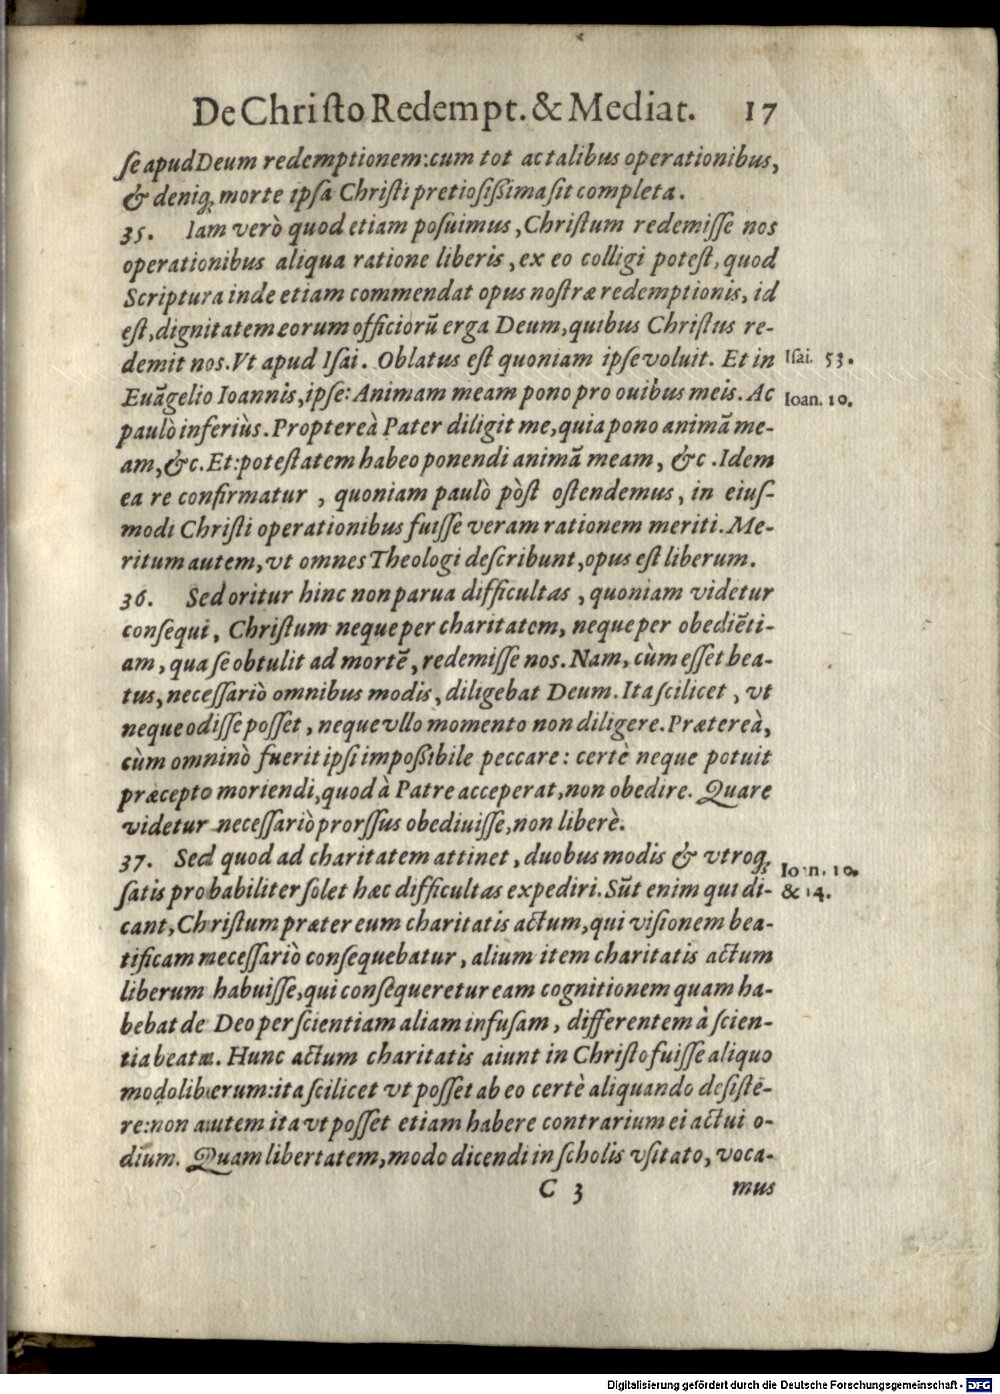 De Chriſto Redempt. & Mediat. 17
ſe apud Deum redemptionem: cum tot ac talibus operationibus,
& deniq; morte ipſa Chriſti pretioſißima ſit completa.
35. Iam verò quod etiam poſuimus, Chriſtum redemiſſe nos
operationibus aliqua ratione liberis, ex eo colligi poteſt, quod
Scriptura inde etiam commendat opus noſtræ redemptionis, id
eſt, dignitatem eorum officiorũ erga Deum, quibus Chriſtus re-
demit nos. Vt apud Iſai. Oblatus eſt quoniam ipſe voluit. Et in
Iſai. 53.
Euãgelio Ioannis, ipſe: Animam meam pono pro ouibus meis. Ac
Ioan. 10.
paulò inferiùs. Proptereà Pater diligit me, quia pono animã me-
am, &c. Et: poteſtatem habeo ponendi animã meam, &c. Idem
ea re confirmatur, quoniam paulò pòſt oſtendemus, in eiuſ-
modi Chriſti operationibus fuiſſe veram rationem meriti. Me-
ritum autem, vt omnes Theologi deſcribunt, opus eſt liberum.
36. Sed oritur hinc non parua difficultas, quoniam videtur
conſequi, Chriſtum neque per charitatem, neque per obediẽti-
am, qua ſe obtulit ad mortẽ, redemiſſe nos. Nam, cùm eſſet bea-
tus, neceſſariò omnibus modis, diligebat Deum. Ita ſcilicet, vt
neque odiſſe poſſet, neque vllo momento non diligere. Prætereà,
cùm omninò fuerit ipſi impoßibile peccare: certè neque potuit
præcepto moriendi, quod à Patre acceperat, non obedire. Quare
videtur neceſſariò prorſſus obediuiſſe, non liberè.
37. Sed quod ad charitatem attinet, duobus modis & vtroq;
Ioan. 10.
ſatis probabiliter ſolet hæc difficultas expediri. Sũt enim qui di-
& 14.
cant, Chriſtum præter eum charitatis actum, qui viſionem bea-
tificam neceſſariò conſequebatur, alium item charitatis actum
liberum habuiſſe, qui conſequeretur eam cognitionem quam ha-
bebat de Deo per ſcientiam aliam infuſam, differentem à ſcien-
tia beata. Hunc actum charitatis aiunt in Chriſto fuiſſe aliquo
modo liberum: ita ſcilicet vt poſſet ab eo certè aliquando deſiſte-
re: non autem ita vt poſſet etiam habere contrarium ei actui o-
dium. Quam libertatem, modo dicendi in ſcholis vſitato, voca-
C 3 mus
Digitalisierung gefördert durch die Deutsche Forschungsgemeinschaft - DFG